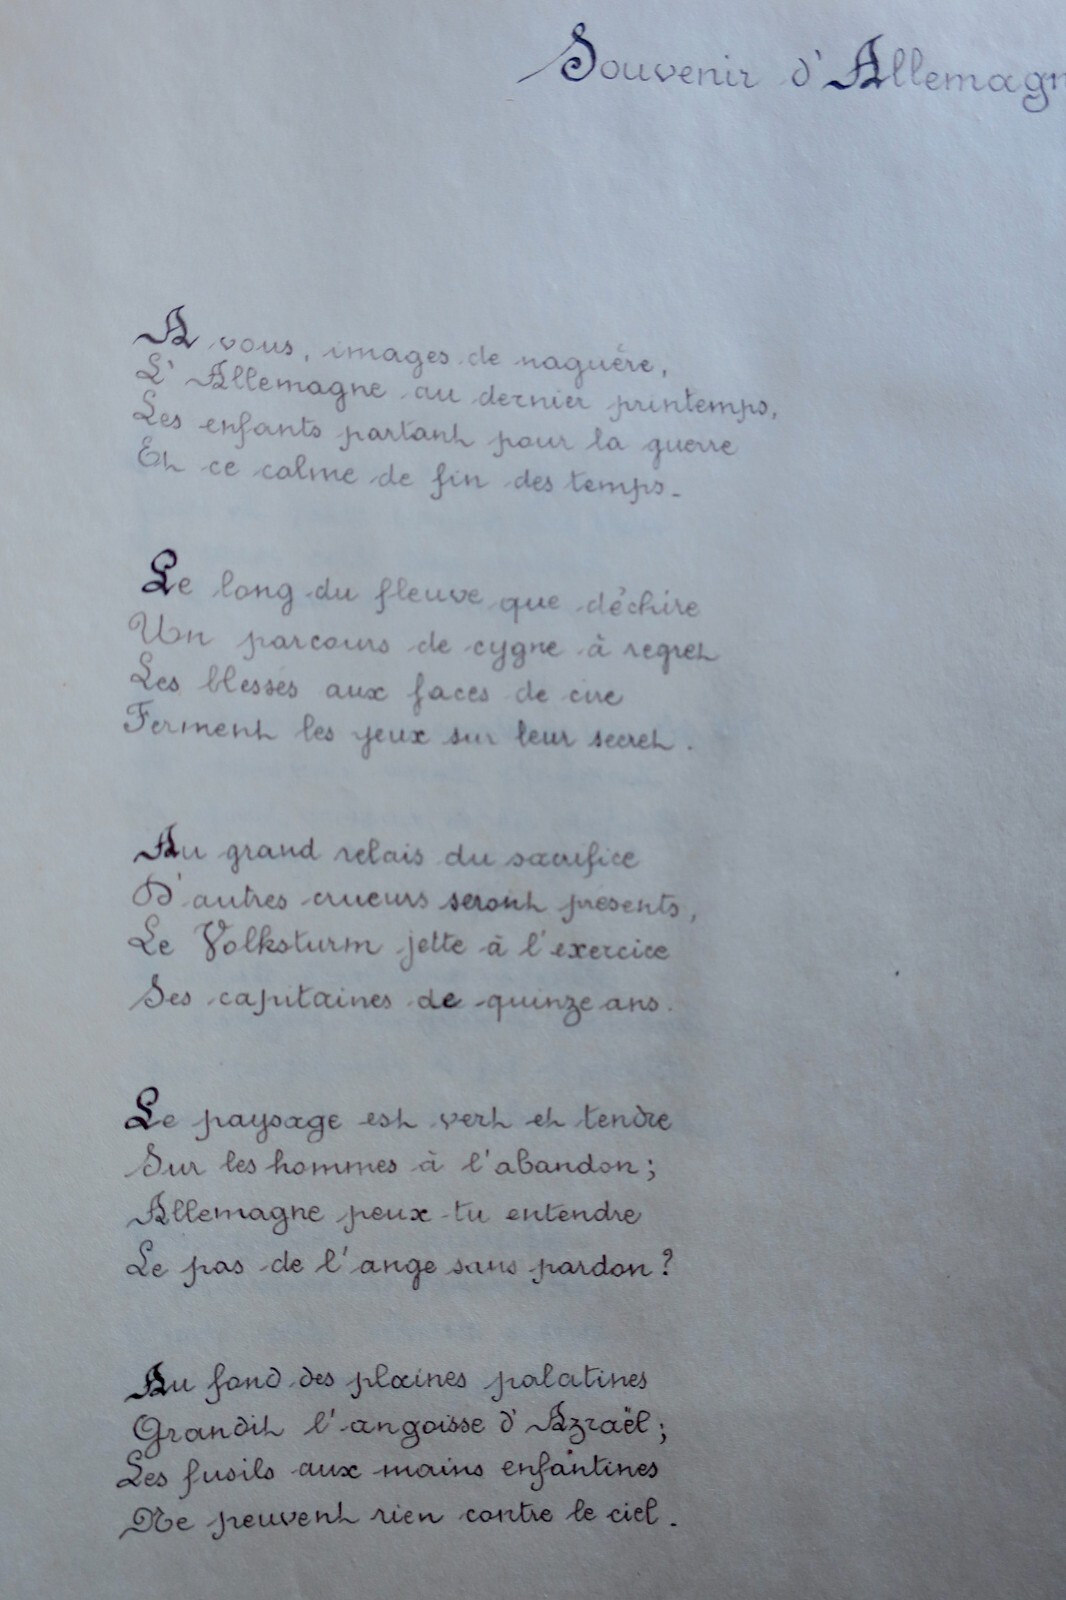 Souvenir d'Allemagn
A vous, images de naguère,
L'Allemagne au dernier printemps,
Les enfants partant pour la guerre
Et ce calme de fin des temps.
Le long du fleuve que déchire
Un parcours de cygne à regret
Les blessés aux faces de cire
Ferment les yeux sur leur secret.
Au grand relais du sacrifice
D'autres crueurs seront présents,
Le Volksturm jette à l'exercice
Ses capitaines de quinze ans.
Le paysage est vert et tendre
Sur les hommes à l'abandon;
Allemagne peux-tu entendre
Le pas de l'ange sans pardon?
Au fond des plaines palatines
Grandit l'angoisse d'Azraël;
Les fusils aux mains enfantines
Ne peuvent rien contre le ciel.